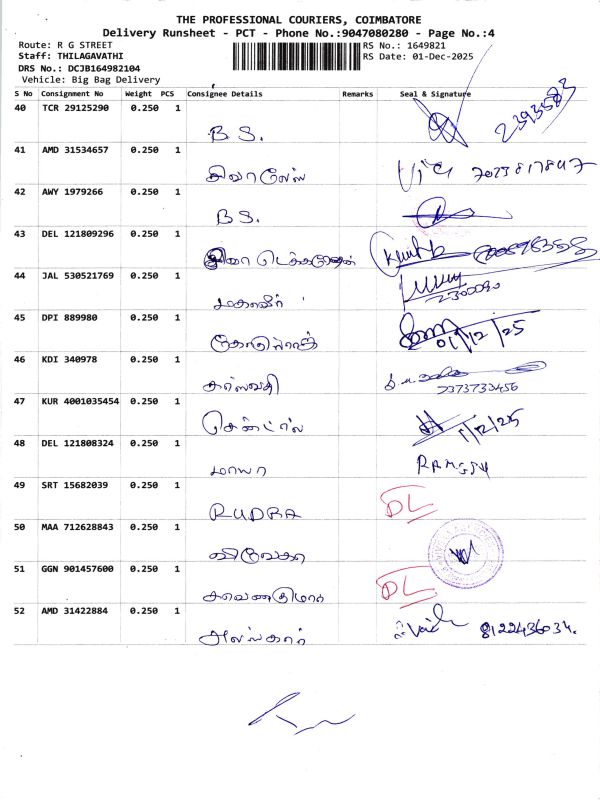 THE PROFESSIONAL COURIERS, COIMBATORE
Delivery Runsheet - PCT - Phone No.:9047080280 - Page No.:4
Route: R G STREET
RS No.: 1649821
Staff: THILAGAVATHI
RS Date: 01-Dec-2025
DRS No.: DCJB164982104
Vehicle: Big Bag Delivery
S No Consignment No Weight PCS Consignee Details Remarks Seal & Signature
40 TCR 29125290 0.250 1
B.S. 2393583
41 AMD 31534657 0.250 1
7023817847
42 AWY 1979266 0.250 1
B.S.
43 DEL 121809296 0.250 1
44 JAL 530521769 0.250 1
மகாவீர் 2300090
45 DPI 889980 0.250 1
01/12/25
46 KDI 340978 0.250 1
சரஸ்வதி 7373733456
47 KUR 4001035454 0.250 1
சென்ட்ரல் 1/12/25
48 DEL 121808324 0.250 1
மாயா RAMESH
49 SRT 15682039 0.250 1
RUDRA DL
50 MAA 712628843 0.250 1
51 GGN 901457600 0.250 1
DL
52 AMD 31422884 0.250 1
அலங்கார் 8122436034.